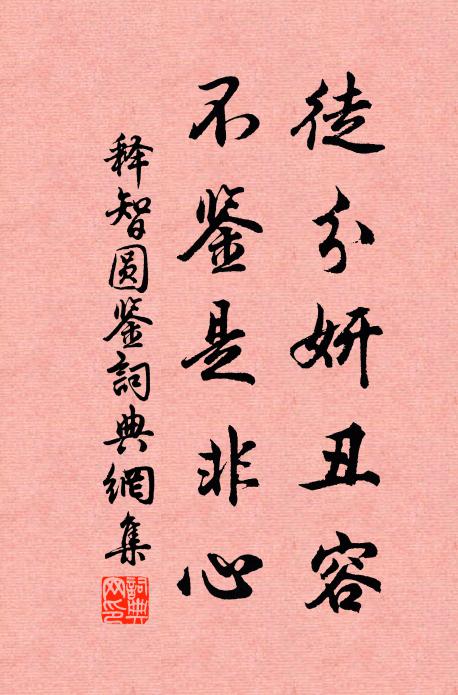 徒分妍丑容
不鉴是非心
释智圆鉴詞典網集
詞典網印